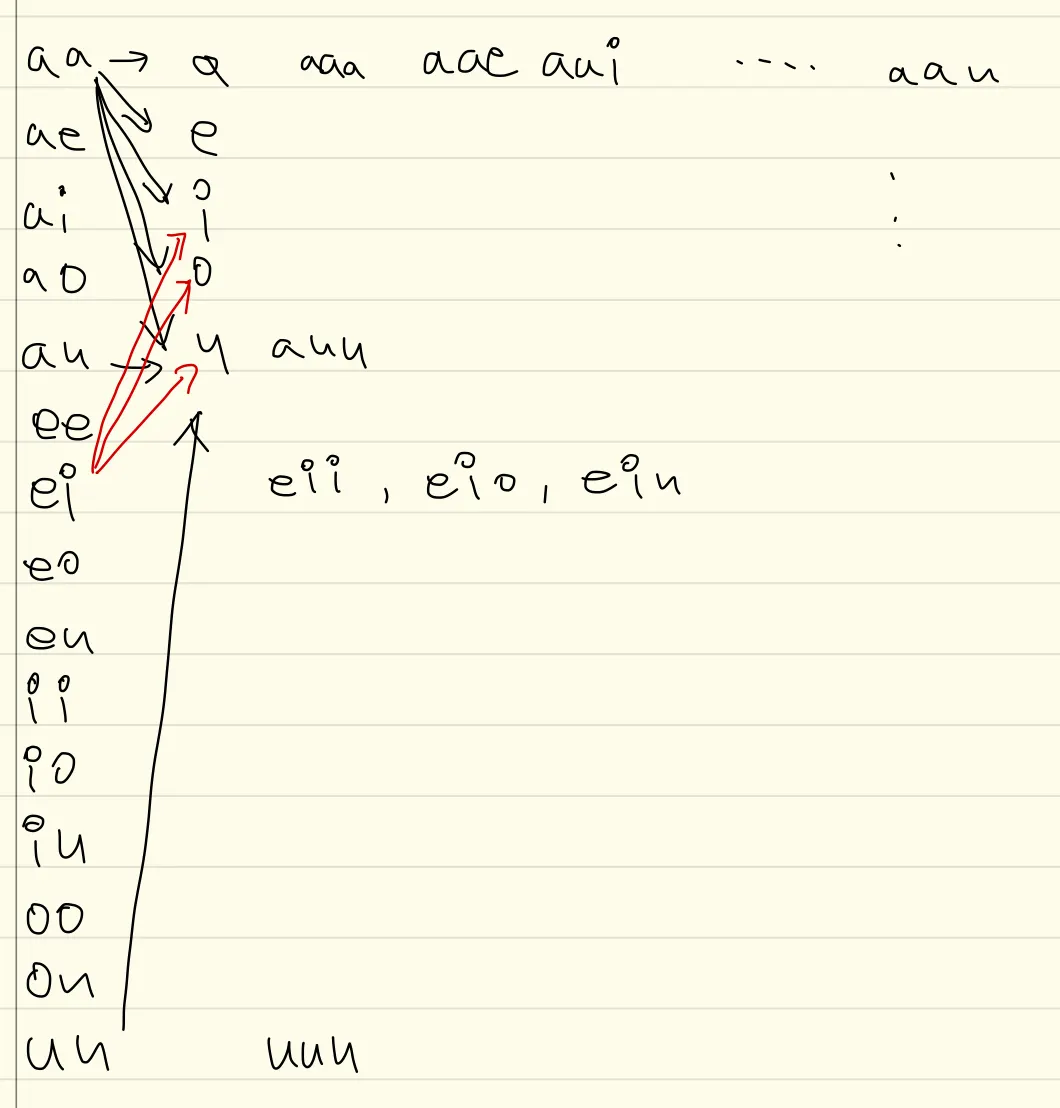 aa → a aaa aae aai ..... aau
ae e
ai i
ao o
au → u auu
ee
ei eii , eio , eiu
eo
eu
ii
io
iu
oo
ou
uu uuu